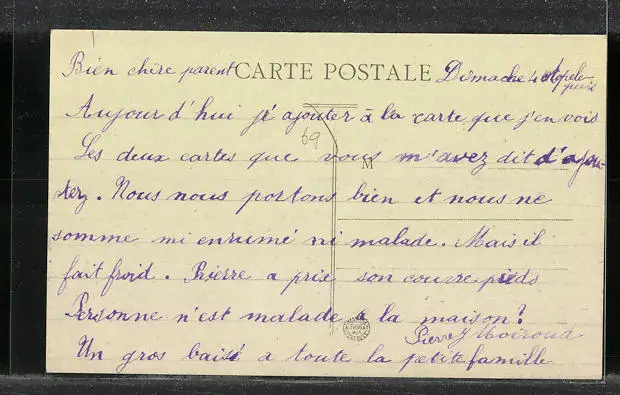 Bien chère parent CARTE POSTALE Dimache 4
Aujour d'hui j'é ajouter à la carte que j'en vois
69
Les deux cartes que vous m'avez dit d'ajou-
M
tez. Nous nous portons bien et nous ne
somme mi enrumé ni malade. Mais il
fait froid. Pierre a pris son couvre-pieds
Personne n'est malade à la maison?
Pierre
Un gros baisé a toute la petite famille